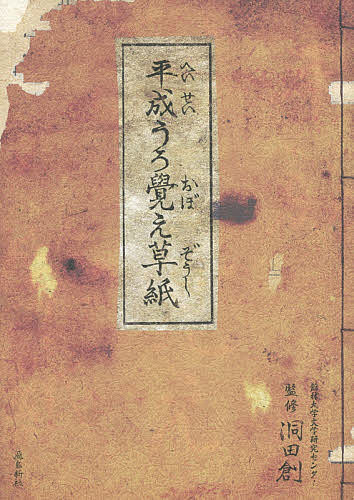 平成うろ覺え草紙
へいせい おぼ ぞうし
大学文学研究センター
監修 洞田創
飛鳥新社